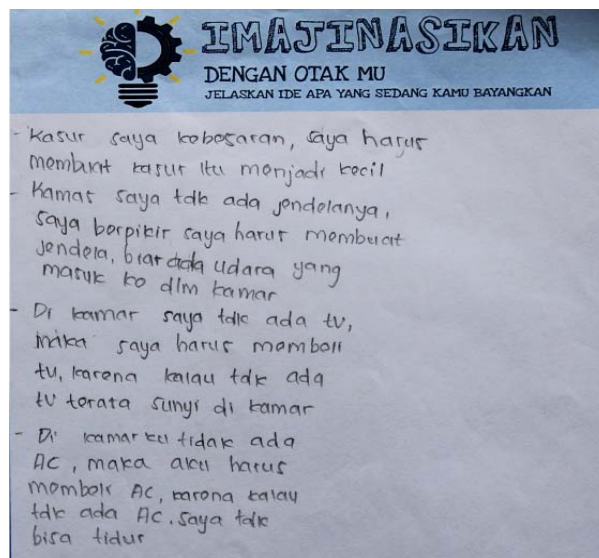 IMAJINASIKAN
DENGAN OTAK MU
JELASKAN IDE APA YANG SEDANG KAMU BAYANGKAN
- Kasur saya kebesaran, saya harus
membuat kasur itu menjadi kecil
- Kamar saya tdk ada jendelanya,
saya berpikir saya harus membuat
jendela, biar ada udara yang
masuk ke dlm kamar
- Di kamar saya tdk ada tv,
maka saya harus membeli
tv, karena kalau tdk ada
tv terata sunyi di kamar
- Di kamar ku tidak ada
AC, maka aku harus
membeli AC, karena kalau
tdk ada AC. saya tdk
bisa tidur